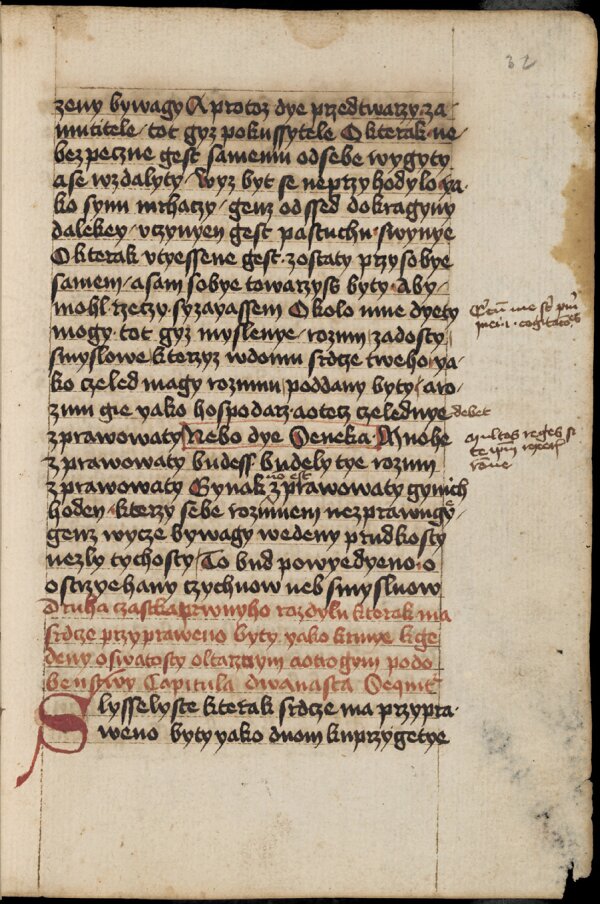 32
zeny bywagy A protoz dye przedtwarzy za
mutitele tot gyz pokussytele O kterak ne
bezpeczne gest samemu odsebe wygyty
a se wzdalyty Wyz byt se neprzyhodylo ya
ko synu mrhaczy genz odssed dokragyny
dalekey vczynyen gest pastuchu swynye
O kterak vtyessene gest zostaty przysobye
samem a sam sobye towarzyss byty Aby
mohl rzeczy syzayassem Okolo mne dyety
mogy tot gyz myslenye rozum zadosty
smyslowe kterzyz wdomu srdcze tweho ya
ko czeled magy rozumu poddany byty a ro
zum gie yako hospodarz a otecz czelednye debet
zprawowaty Nebo dye Seneka Mnohe
zprawowaty budess budely tye rozum
zprawowaty Gynak zprawowaty gynich
hoden kterzy sebe rozumem nezprawugy
genz wycze bywagy wedeny prudkosty
nezly tychosty To bud powyedyeno o
ostrzyehany czychnow neb smysluow
Druha czastka prwnyho rozdylu kterak ma
srdcze przypraweno byty yako krmye kge
deny oswatosty oltarznym a otrogym podo
benstwy Capitula dwanasta Sequitur
Slysselyste kterak srdcze ma przypra
weno byty yako duom kuprzygetye
multos reges si
te